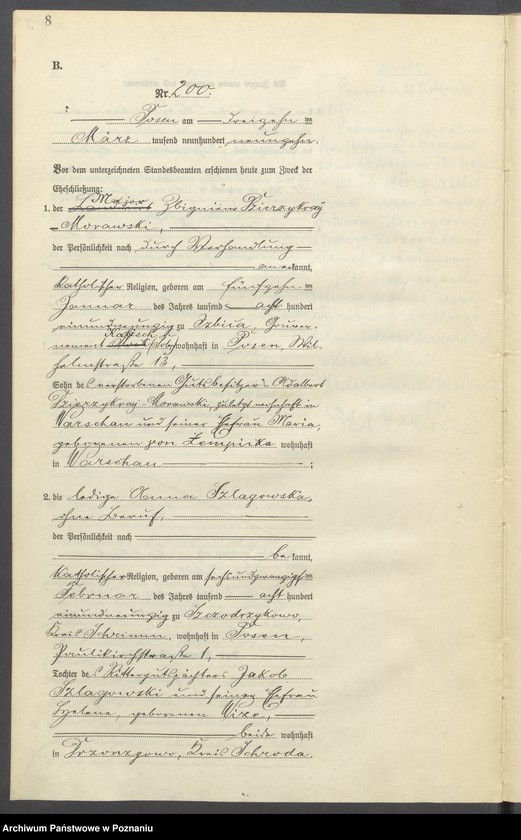 8
B.
Nr. 200.
Posen am Dreizehnten
März tausend neunhundert neunzehn.
Vor dem unterzeichneten Standesbeamten erschienen heute zum Zweck der
Eheschließung:
Major
1. der Zbigniew Dzierzykraj
Morawski,
der Persönlichkeit nach durch Verhandlung
anerkannt,
katholischer Religion, geboren am fünfzehnten
Januar des Jahres tausend acht hundert
einundneunzig zu Gouver-
nement wohnhaft in Posen, Wil-
helmstraße 13,
Sohn des verstorbenen Gutsbesitzers Adalbert
Dzierzykraj-Morawski, zuletzt wohnhaft in
Warschau und seiner Ehefrau Maria,
geborenen von wohnhaft
in Warschau ;
2. die ledige Anna Szlagowska,
ohne Beruf,
der Persönlichkeit nach
bekannt,
katholischer Religion, geboren am sechsundzwanzigsten
Februar des Jahres tausend acht hundert
einundneunzig zu Szczodrzykowo,
Kreis Schrimm, wohnhaft in Posen,
Paulikirchstraße 1,
Tochter des Rittergutspächters Jakob
Szlagowski und seiner Ehefrau
Helene, geborenen
beide wohnhaft
in Drzonzgowo, Kreis Schroda.
Archiwum Państwowe w Poznaniu